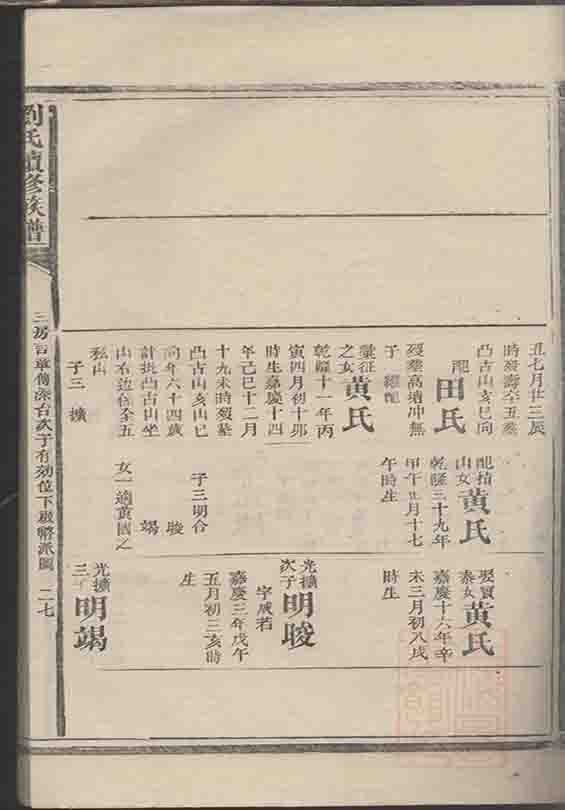 丑七月廿三辰
時歿壽全五葬
凸古山亥巳向
配田氏
歿葬高塘冲無
子 繼配
彙征之女黃氏
乾隆十一年丙
寅四月初十卯
時生嘉慶十四
年己巳十二月
十九未時歿墓
凸古山亥山巳
向年六十四歲
計批凸古山坐
山右边係全五
私山
子三 擴
配楷山女黃氏
乾隆三十九年
甲午正月十七
午時生
子三明合
駿
竭
女一適黃國之
娶賢泰女黃氏
嘉慶十六年辛
未三月初八戌
時生
光擴次子明駿
字咸若
嘉慶三年戊午
五月初三亥時
生
光擴三明竭
劉氏續修族譜
三房言章傳深台次子有効位下啟將派圖 二七